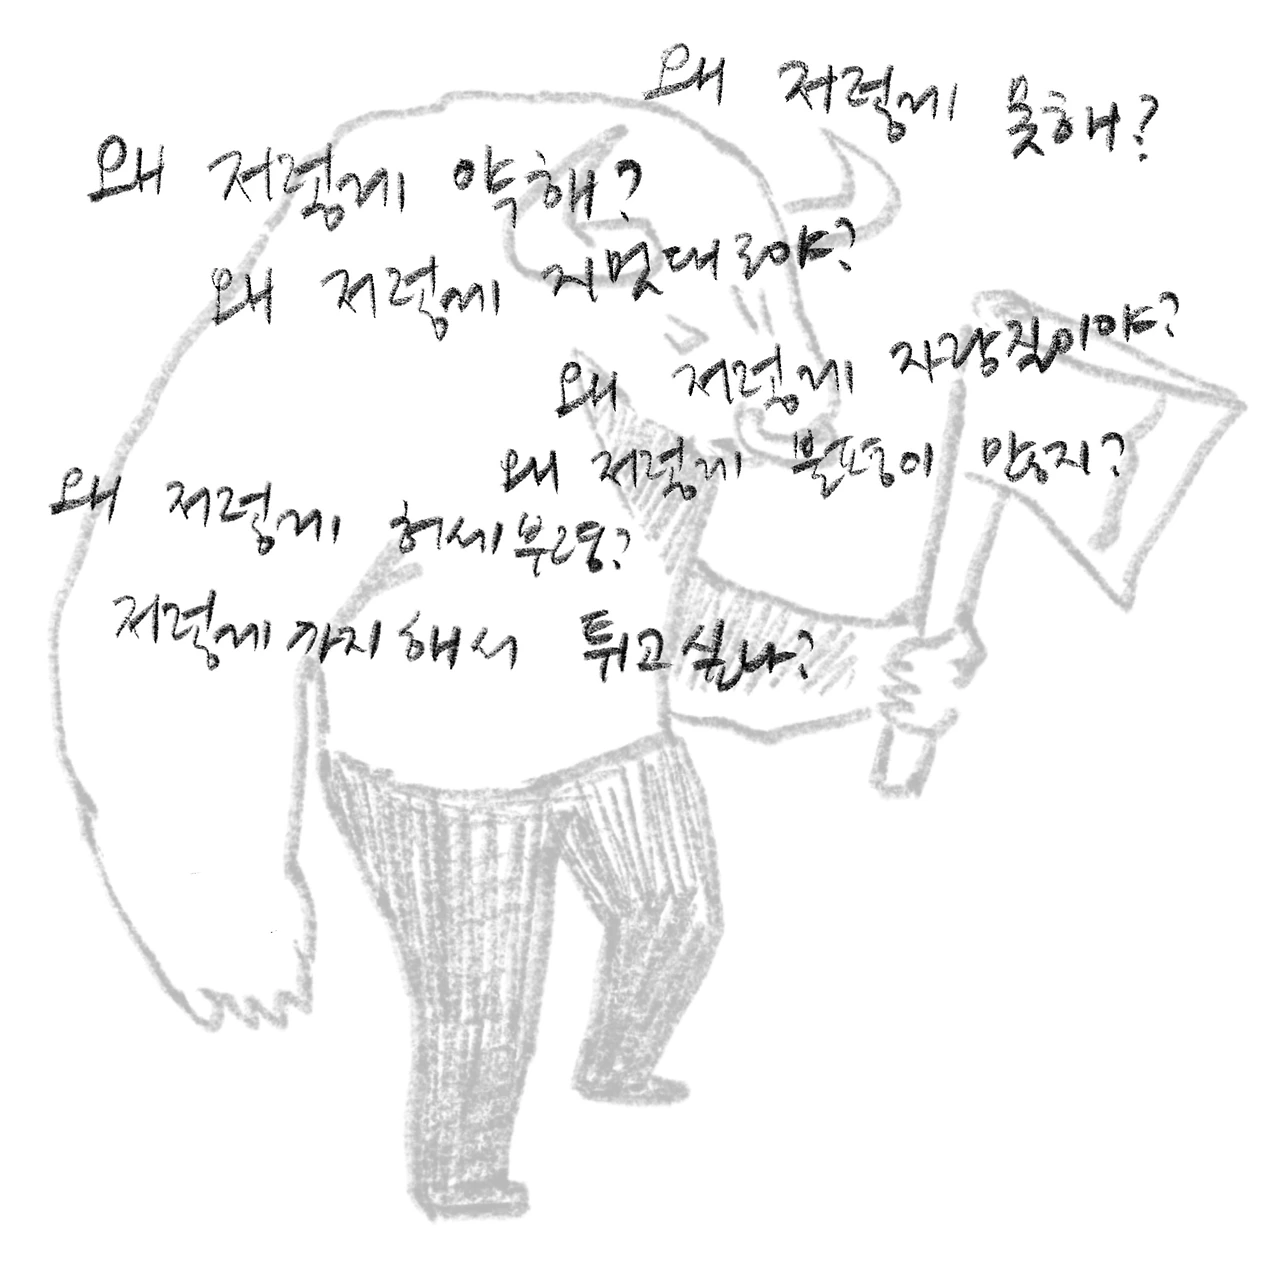 왜 저렇게 못해?
왜 저렇게 약해?
왜 저렇게 지멋대로야?
왜 저렇게 자랑질이야?
왜 저렇게 불평이 많지?
왜 저렇게 허세부령?
저렇게까지해서 튀고싶나?